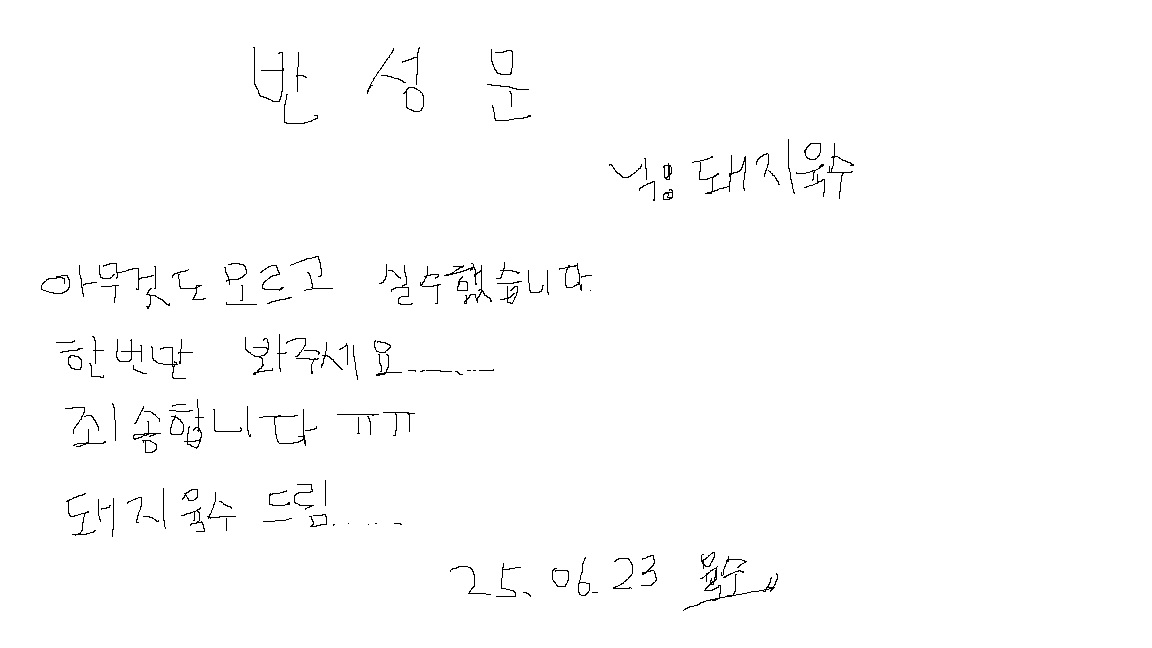 반 성 문
닉: 돼지육수
아무것도 모르고 실수했습니다
한번만 봐주세요.........
죄송합니다 ㅠㅠ
돼지육수 드림......
25.06.23 육수